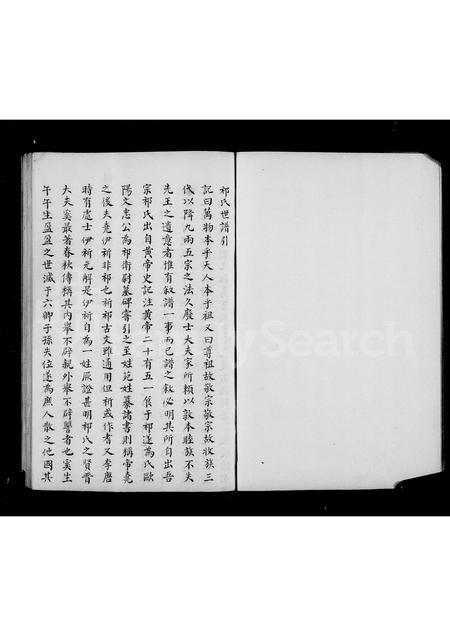 祁氏世譜引
記曰萬物本乎天人本乎祖又曰尊祖故敬宗敬宗故收族三
代以降九兩五宗之法久廢士大夫家所賴以敦本睦族不失
先王之遺意者惟有敘譜一事而已譜之敘必明其所自出吾
宗祁氏出自黃帝史記注黃帝二十有五一食于祁遂為氏歐
陽文忠公為祁衛尉墓碑嘗引之至姓苑姓纂諸書則稱帝堯
之後夫堯伊祈非祁也祈祁古文雖通用但祈或作耆又李唐
時有處士伊祈元解是伊祈自為一姓厥證甚明祁氏之賢晉
大夫奚最著春秋傳稱其內舉不辟親外舉不辟讐者也奚生
午午生盈盈之世滅于六卿子孫失位遂為庶人散之他國其
FamilySearch